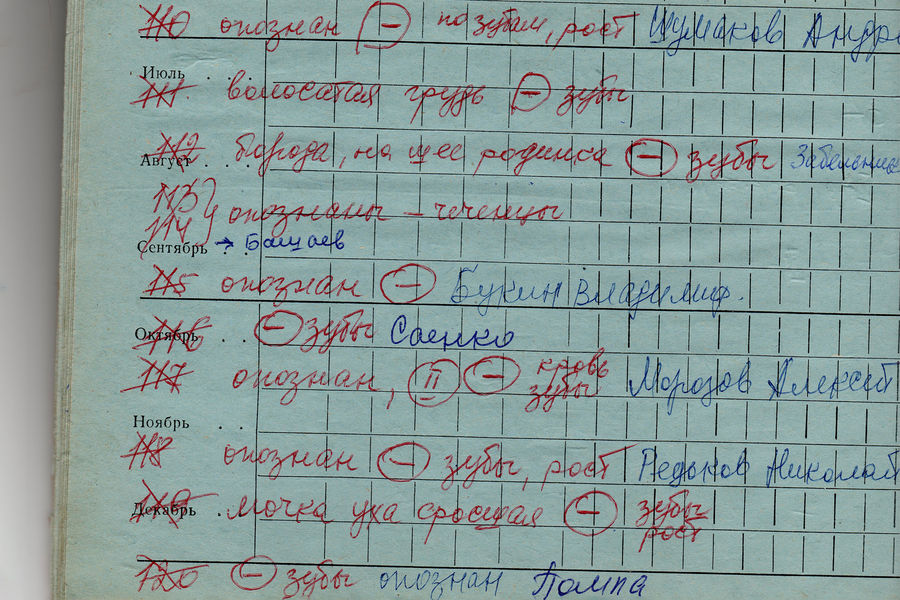 110 опознан (–) по зубам, рост Шумаков Андр
Июль . . .
111 волосатая грудь (–) зубы
Август . .
112 борода, на шее родинка (–) зубы
113
114 } опознаны – чеченцы
Сентябрь . . → Башаев
115 опознан (–) Букин Владимир.
Октябрь . .
116 (–) зубы Саенко
117 опознан, (II) (–) кровь зубы Морозов Алексей
Ноябрь . .
118 опознан (–) зубы, рост Редьков Николай
Декабрь .
119 мочка уха сросшая (–) зубы рост
120 (–) зубы опознан Помпа